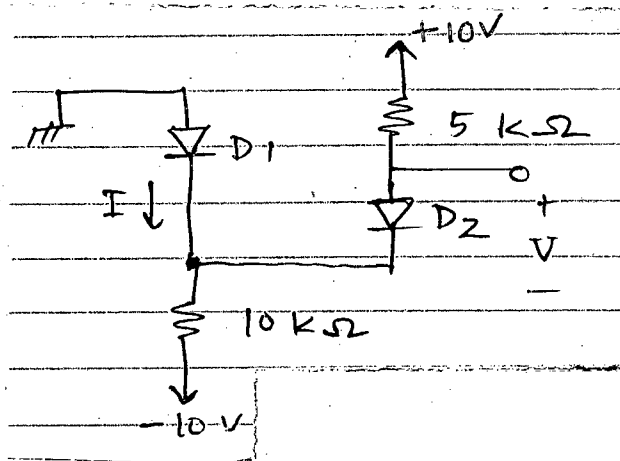 +10V
5 KΩ
D1
I
D2
+
V
−
10 KΩ
-10 V